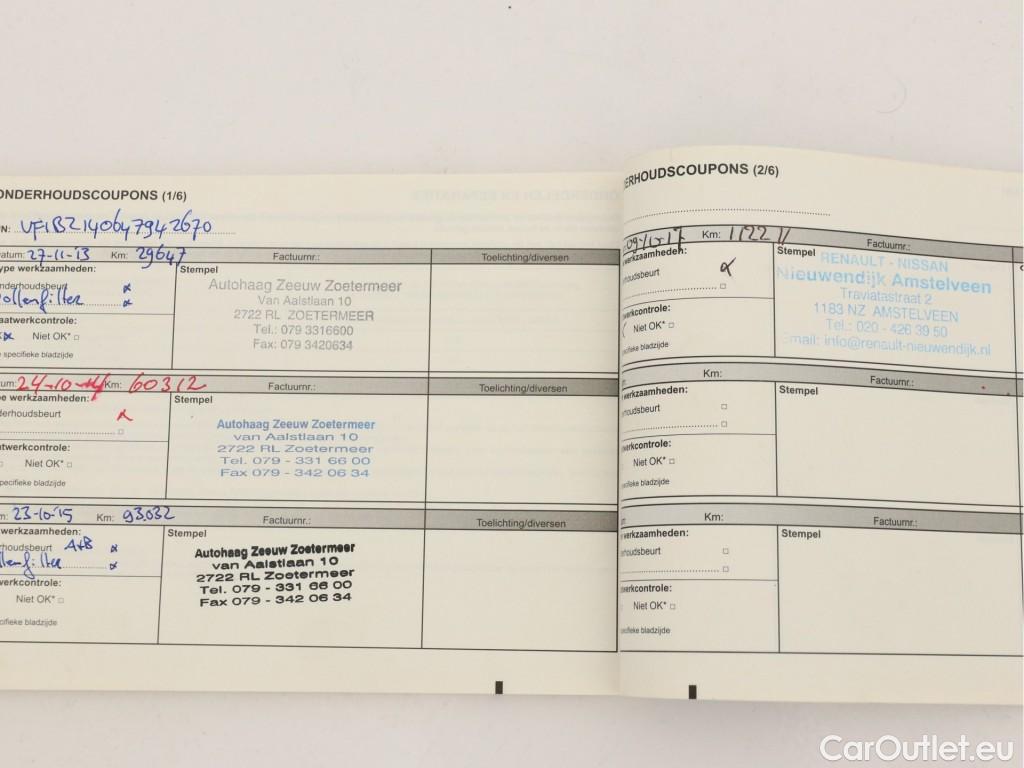 ONDERHOUDSCOUPONS (1/6)
VF1BZ140647942670
atum: 27-11-'13 Km: 29647 Factuurnr.: Toelichting/diversen
ype werkzaamheden: Stempel
nderhoudsbeurt
ollenfilter
aatwerkcontrole:
Niet OK*
e specifieke bladzijde
Autohaag Zeeuw Zoetermeer
Van Aalstlaan 10
2722 RL ZOETERMEER
Tel.: 079 3316600
Fax: 079 3420634
um: 24-10-14 Km: 60312 Factuurnr.: Toelichting/diversen
pe werkzaamheden: Stempel
derhoudsbeurt
atwerkcontrole:
Niet OK*
specifieke bladzijde
Autohaag Zeeuw Zoetermeer
van Aalstlaan 10
2722 RL Zoetermeer
Tel. 079 - 331 66 00
Fax 079 - 342 06 34
m: 23-10-'15 Km: 93.032 Factuurnr.: Toelichting/diversen
werkzaamheden: Stempel
rhoudsbeurt A+B
llenfilter
werkcontrole:
Niet OK*
cifieke bladzijde
Autohaag Zeeuw Zoetermeer
van Aalstlaan 10
2722 RL Zoetermeer
Tel. 079 - 331 66 00
Fax 079 - 342 06 34
ERHOUDSCOUPONS (2/6)
Km: Factuurnr.:
werkzaamheden: Stempel
rhoudsbeurt
werkcontrole:
Niet OK*
ecifieke bladzijde
RENAULT - NISSAN
Nieuwendijk Amstelveen
Traviatastraat 2
1183 NZ AMSTELVEEN
Tel.: 020 - 426 39 50
Email: info@renault-nieuwendijk.nl
Km: Factuurnr.:
werkzaamheden: Stempel
erhoudsbeurt
twerkcontrole:
Niet OK*
pecifieke bladzijde
m: Km: Factuurnr.:
werkzaamheden: Stempel
erhoudsbeurt
atwerkcontrole:
Niet OK*
specifieke bladzijde
CarOutlet.eu